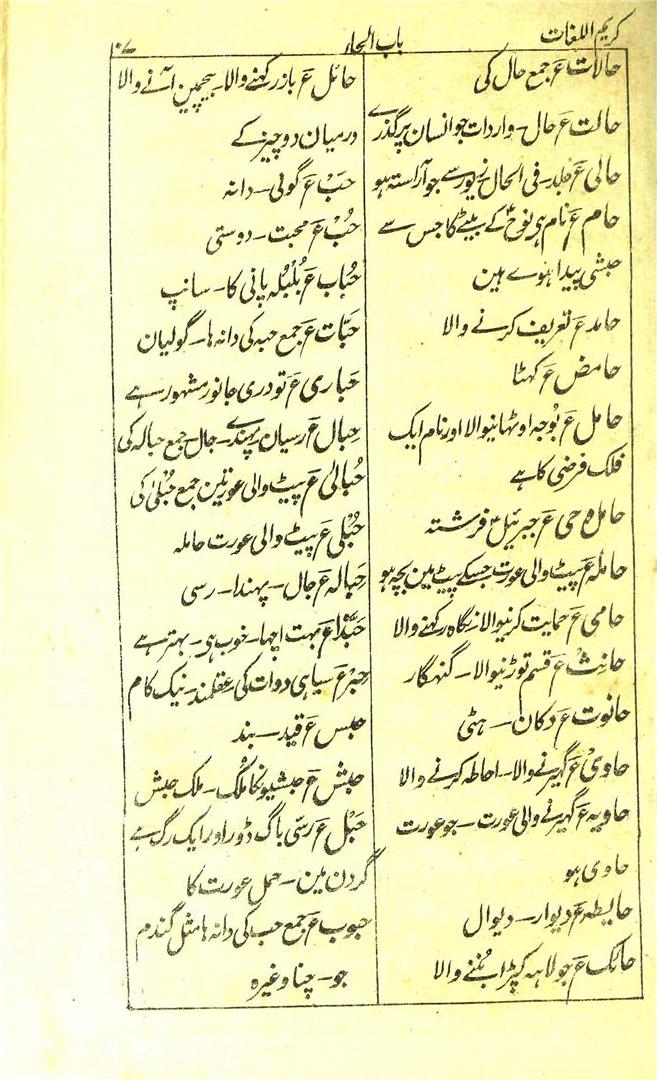 کریم اللغات
باب الحاء
۱۰۷
حالات ع جمع حال کی
حالت ع حال۔ واردات جو انسان پر گذرے
حالی ع جلد۔ فی الحال زیور سے جو آراستہ ہو
حام ع نام ہی نوحؑ کے بیٹے کا جس سے
حبشی پیدا ہوے ہین
حامد ع تعریف کرنے والا
حامض ع کھٹا
حامل ع بوجہ اوٹھانیوالا اور نام ایک
فلک فرضی کا ہے
حامل وحی ع جبرئیلؑ فرشتہ
حاملہ ع پیٹ والی عورت جسکے پیٹ مین بچہ ہو
حامی ع حمایت کرنیوالا نگاہ رکہنے والا
حانِث ع قسم توڑنیوالا۔ گنہگار
حانوت ع دکان۔ ہٹی
حاوی ع گہیرنے والا۔ احاطہ کرنے والا
حاویہ ع گہیرنے والی عورت۔ جو عورت
حاوی ہو
حایطہ ع دیوار۔ دیوال
حائک ع جولاہہ کپڑا بُننے والا
حائل ع باز رکہنے والا۔ بیچمین آنے والا
درمیان دو چیز کے
حَبْ ع گولی۔ دانہ
حُبْ ع محبت۔ دوستی
حُباب ع بُلبُلہ پانی کا۔ سانپ
حَبّات ع جمع حبہ کی دانہ ہا۔ گولیان
حَباری ع تودری جانور مشہور ہے
حِبال ع رسیان پہندے۔ جال۔ جمع حبالہ کی
حُبالیٰ ع پیٹ والی عورتین جمع حُبلیٰ کی
حُبلی ع پیٹ والی عورت حاملہ
حِبالہ ع جال۔ پہندا۔ رسی
حَبَّذا ع بہت اچہا۔ خوب ہی۔ بہتر ہے
حِبر ع سیاہی دوات کی عقلمند۔ نیک کام
حبس ع قید۔ بند
حبش ع حبشیونکا مُلک۔ ملک حبش
حَبْل ع رسّی باگ ڈور اور ایک رگ ہے
گردن مین۔ حمل عورت کا
حبوب ع جمع حب کی دانہ ہا مثل گندم
جو۔ چنا وغیرہ